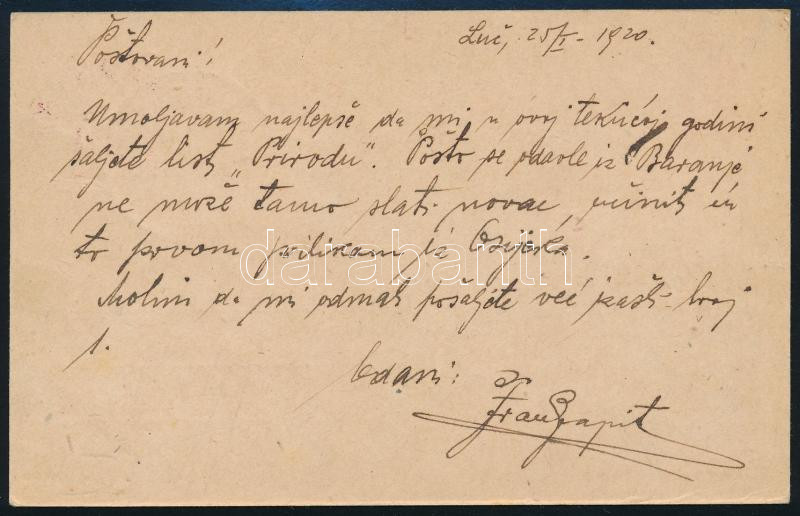 Luč, 25/I - 1920.
Poštovani!
Umoljavam najlepše da mi u ovoj tekućoj godini
šaljete list „Prirodu". Pošto se odavle iz Baranje
ne može tamo slati novac, učinit ću
to prvom prilikom iz Osijeka.
darabanth
Molim da mi odmah pošaljete već izašli broj
1.
Odani: